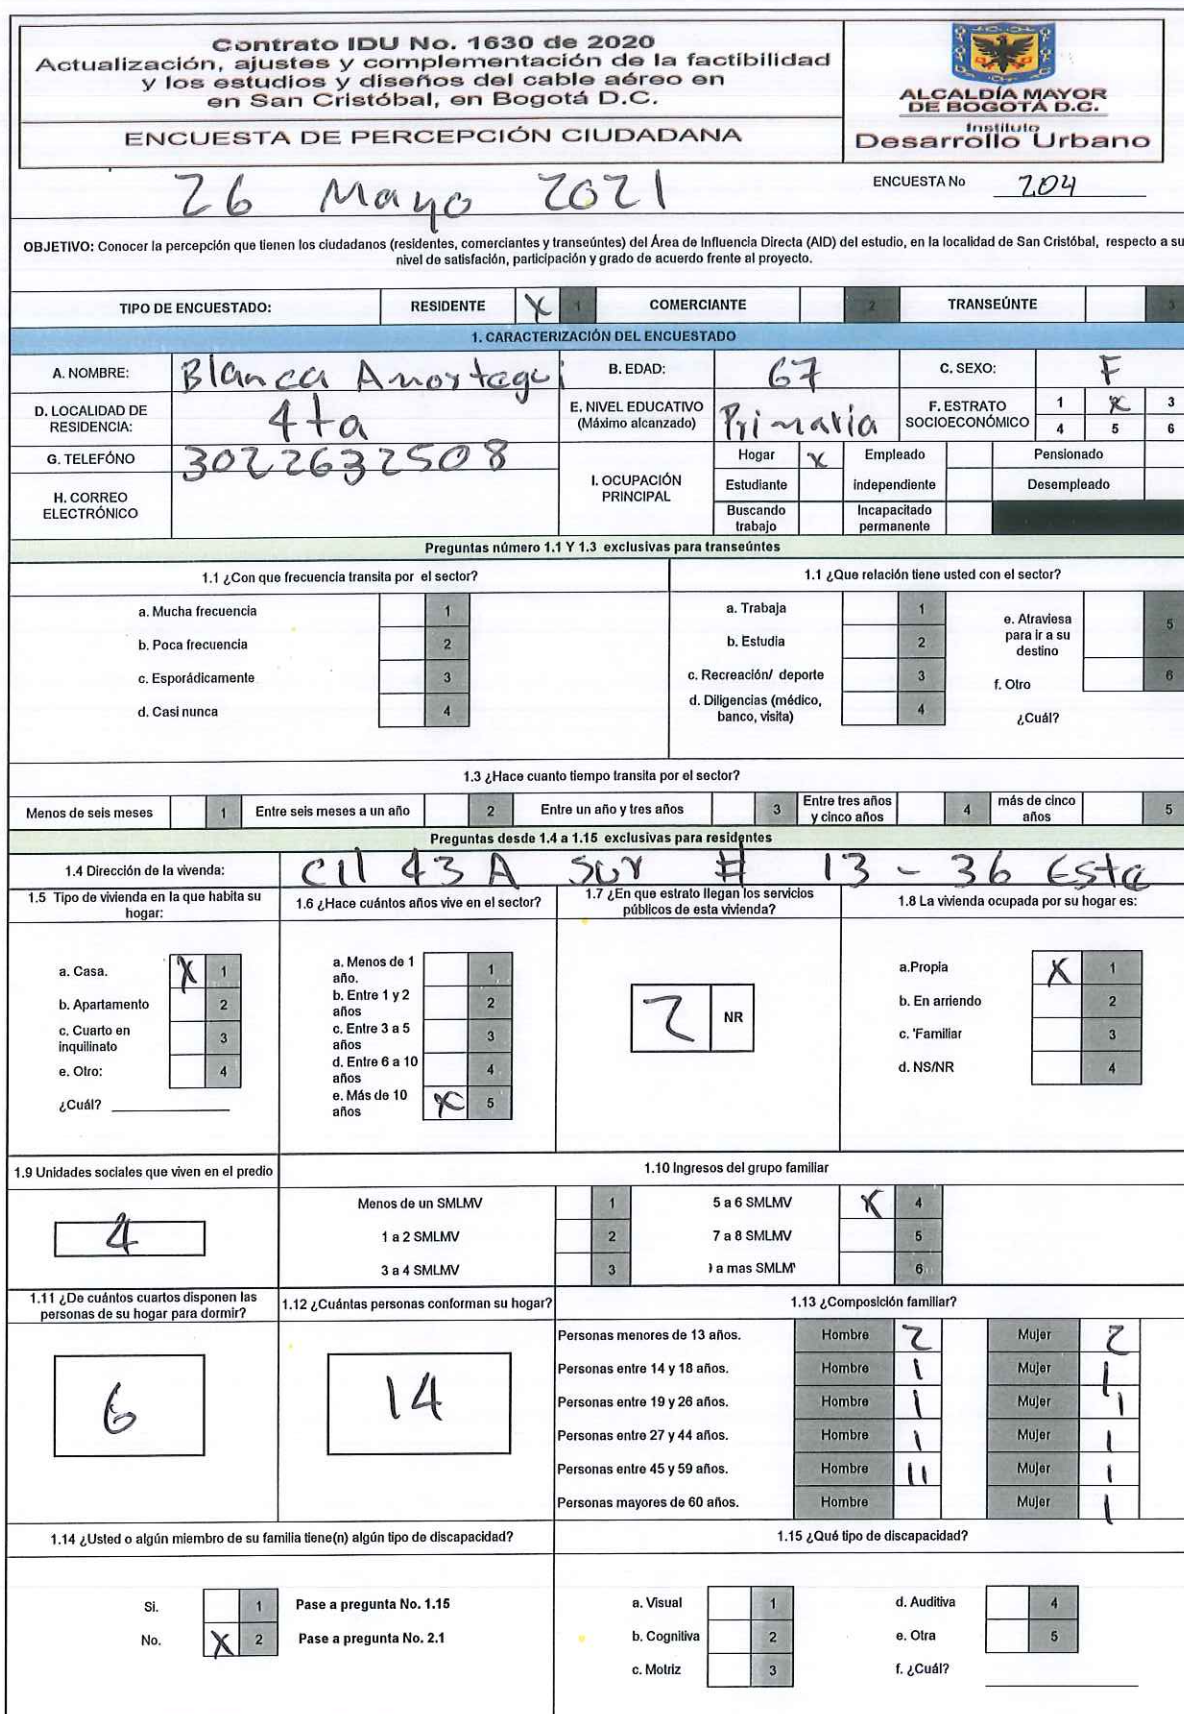 Contrato IDU No. 1630 de 2020
Actualización, ajustes y complementación de la factibilidad
y los estudios y diseños del cable aéreo en
en San Cristóbal, en Bogotá D.C.
ENCUESTA DE PERCEPCIÓN CIUDADANA
ALCALDÍA MAYOR
DE BOGOTÁ D.C.
Instituto
Desarrollo Urbano
26 Mayo 2021
ENCUESTA No 204
OBJETIVO: Conocer la percepción que tienen los ciudadanos (residentes, comerciantes y transeúntes) del Área de Influencia Directa (AID) del estudio, en la localidad de San Cristóbal, respecto a su
nivel de satisfacción, participación y grado de acuerdo frente al proyecto.
TIPO DE ENCUESTADO: RESIDENTE X 1 COMERCIANTE 2 TRANSEÚNTE 3
1. CARACTERIZACIÓN DEL ENCUESTADO
A. NOMBRE: Blanca Amortegui B. EDAD: 67 C. SEXO: F
D. LOCALIDAD DE RESIDENCIA: 4ta E. NIVEL EDUCATIVO (Máximo alcanzado) Primaria F. ESTRATO SOCIOECONÓMICO 1 X 3
4 5 6
G. TELEFÓNO 3022632508
H. CORREO ELECTRÓNICO
I. OCUPACIÓN PRINCIPAL
Hogar X Empleado Pensionado
Estudiante independiente Desempleado
Buscando trabajo Incapacitado permanente
Preguntas número 1.1 Y 1.3 exclusivas para transeúntes
1.1 ¿Con que frecuencia transita por el sector?
a. Mucha frecuencia 1
b. Poca frecuencia 2
c. Esporádicamente 3
d. Casi nunca 4
1.1 ¿Que relación tiene usted con el sector?
a. Trabaja 1
b. Estudia 2
c. Recreación/ deporte 3
d. Diligencias (médico, banco, visita) 4
e. Atraviesa para ir a su destino 5
f. Otro 6
¿Cuál?
1.3 ¿Hace cuanto tiempo transita por el sector?
Menos de seis meses 1 Entre seis meses a un año 2 Entre un año y tres años 3 Entre tres años y cinco años 4 más de cinco años 5
Preguntas desde 1.4 a 1.15 exclusivas para residentes
1.4 Dirección de la vivenda: Cll 43 A Sur # 13 - 36 Este
1.5 Tipo de vivienda en la que habita su hogar:
a. Casa. X 1
b. Apartamento 2
c. Cuarto en inquilinato 3
e. Otro: 4
¿Cuál?
1.6 ¿Hace cuántos años vive en el sector?
a. Menos de 1 año. 1
b. Entre 1 y 2 años 2
c. Entre 3 a 5 años 3
d. Entre 6 a 10 años 4
e. Más de 10 años X 5
1.7 ¿En que estrato llegan los servicios públicos de esta vivienda?
2 NR
1.8 La vivienda ocupada por su hogar es:
a.Propia X 1
b. En arriendo 2
c. 'Familiar 3
d. NS/NR 4
1.9 Unidades sociales que viven en el predio
4
1.10 Ingresos del grupo familiar
Menos de un SMLMV 1 5 a 6 SMLMV X 4
1 a 2 SMLMV 2 7 a 8 SMLMV 5
3 a 4 SMLMV 3 a mas SMLM 6
1.11 ¿De cuántos cuartos disponen las personas de su hogar para dormir?
6
1.12 ¿Cuántas personas conforman su hogar?
14
1.13 ¿Composición familiar?
Personas menores de 13 años. Hombre 2 Mujer 2
Personas entre 14 y 18 años. Hombre 1 Mujer 1
Personas entre 19 y 26 años. Hombre 1 Mujer 1
Personas entre 27 y 44 años. Hombre 1 Mujer 1
Personas entre 45 y 59 años. Hombre 11 Mujer 1
Personas mayores de 60 años. Hombre Mujer 1
1.14 ¿Usted o algún miembro de su familia tiene(n) algún tipo de discapacidad?
Si. 1 Pase a pregunta No. 1.15
No. X 2 Pase a pregunta No. 2.1
1.15 ¿Qué tipo de discapacidad?
a. Visual 1 d. Auditiva 4
b. Cognitiva 2 e. Otra 5
c. Motriz 3 f. ¿Cuál?